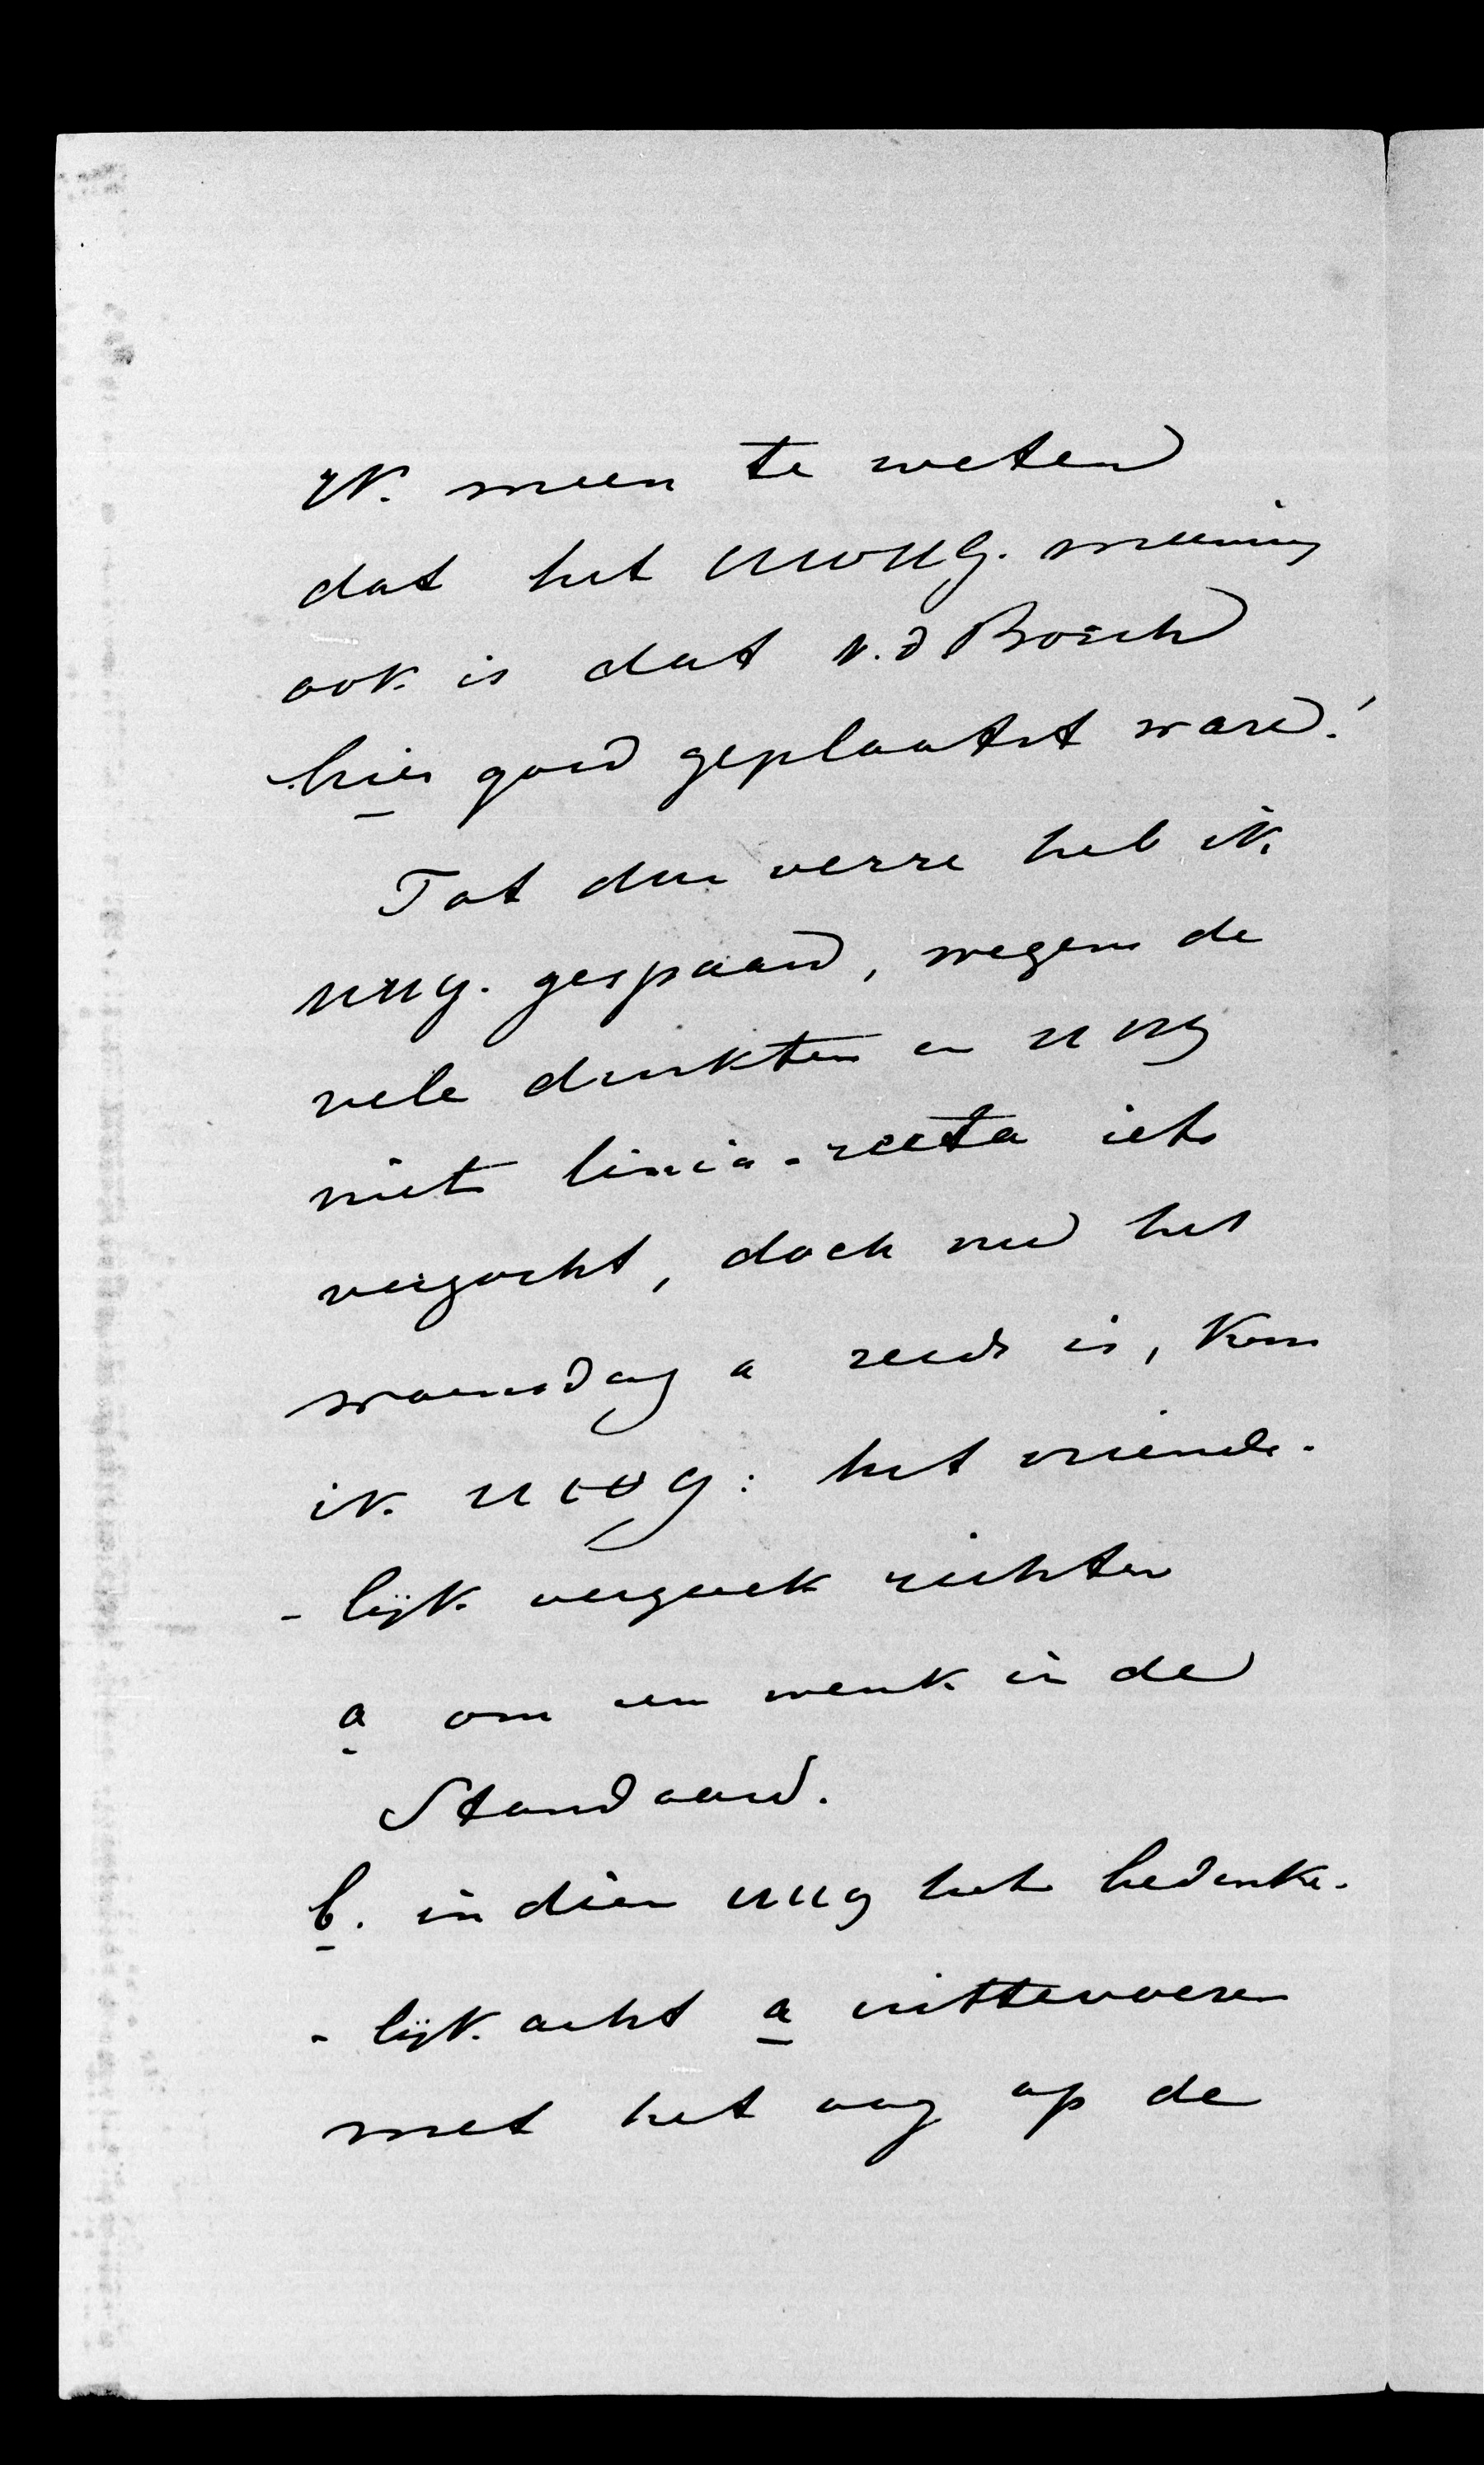 Ik meen te weten
dat het UwHG. meening
ook is dat v. d Bosch
hier goed geplaatst ware!
Tot dus verre heb ik
UHG. gespaard, wegens de
vele drukten en UHG
niet linia-recta iets
verzocht, doch nu het
woensdag a reeds is, kom
ik UHG: het vriende-
-lijk verzoek richten
a om een wenk in de
Standaard.
b. indien UHG het bedenke-
-lijk acht a uittevoeren
met het oog op de